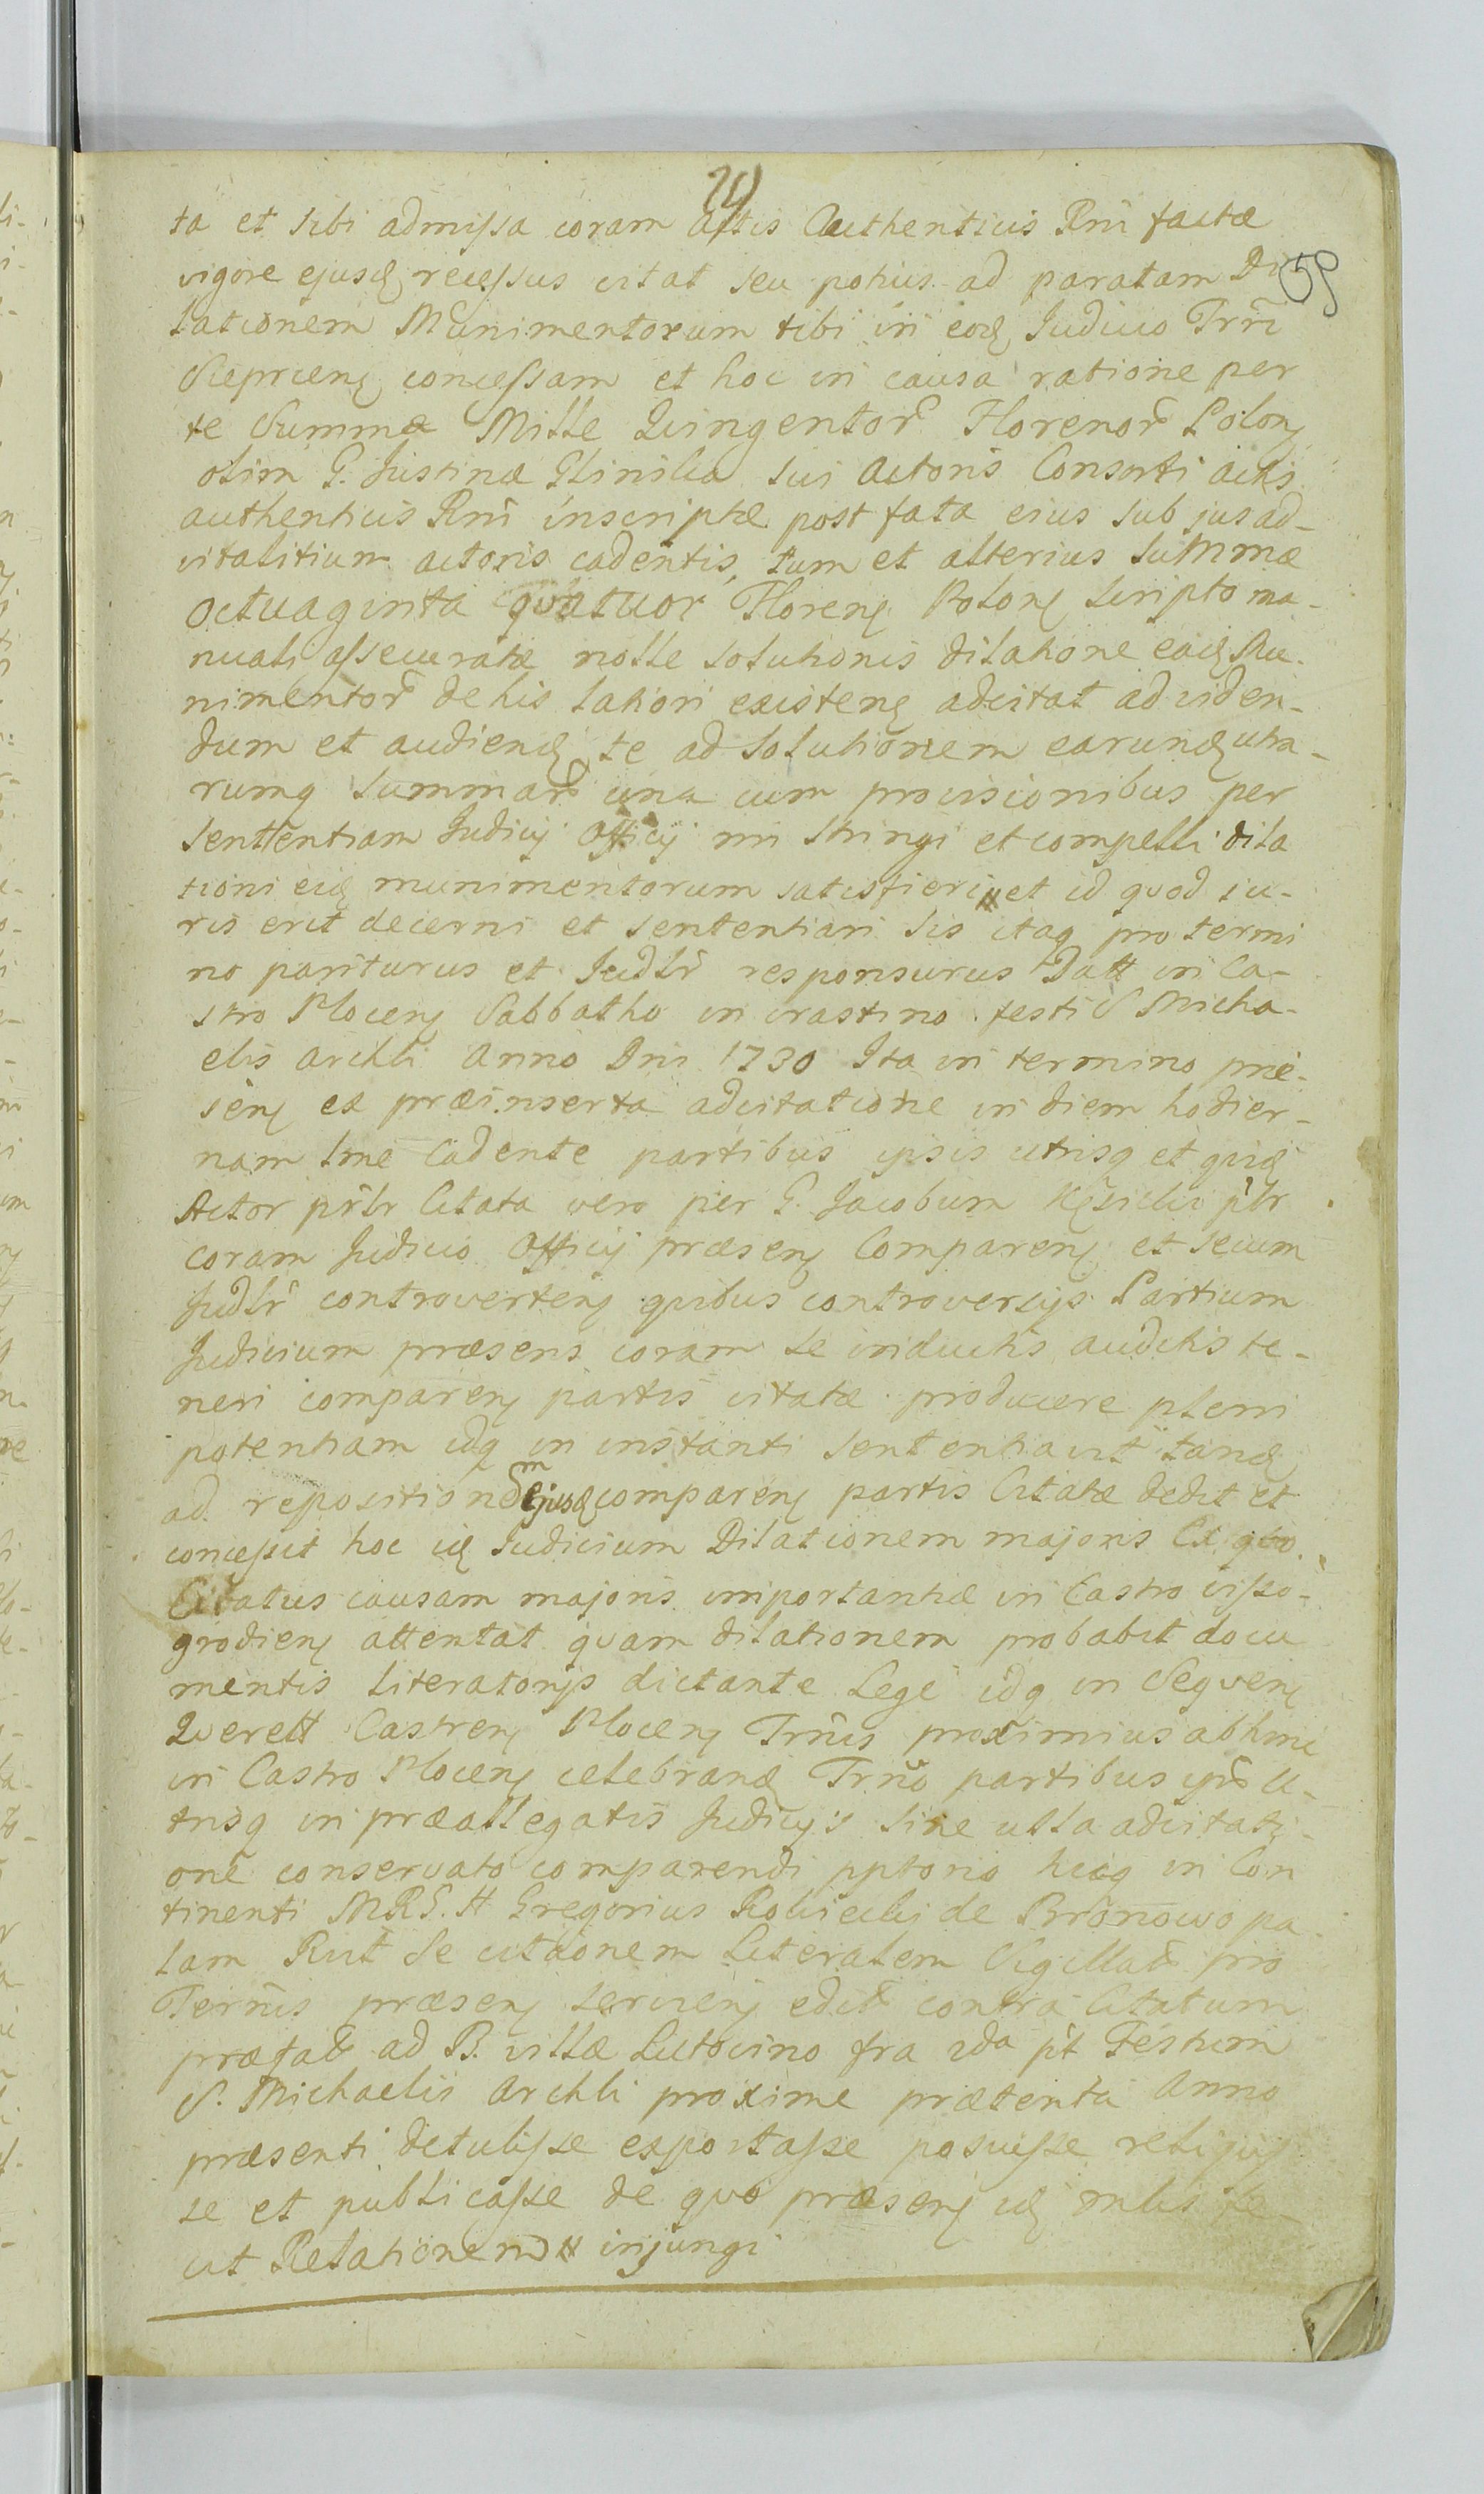 29
59
ta et sibi admissa coram actis Authenticis Rñi factæ
vigore ejusđ recessus citat seu potius ad paratam Di
lationem Munimentorum tibi in eođ Judicio Trñi
Sieprcenş concessam et hoc in causa ratione per
te Summæ Mille Qvingentor̃ Florenor̃ Polonş
olim G. Justinæ Glinska sui actoris Consorti actis
authenticis Rñi inscriptæ post fata eius sub jus ad-
vitalitium actoris cadentis, tum et alterius summæ
octuaginta qvatuor Florenş Polonş scripto ma-
nuali assecuratæ nolle solutionis dilatione eađ Mu-
nimentor̃ de his latiori existenş adcitat ad viden-
dum et audienđ te ad solutionem earunđ utra-
rumq summar̃ una cum provisionibus per
senttentiam Judicij Officij mi stringi et compelli dila
tioni eiđ munimentorum satisfieri et id quod iu-
ris erit decerni et sententiari sis itaq pro termi
no pariturus et Judłr responsurus Datt in Ca-
stro Plocenş Sabbatho in crastino festi S Micha-
elis Archli Anno Dni 1730 Ita in termino præ-
senş ex præinserta adcitatione in diem hodier-
nam łme Cadente partibus ipsis utrisq et qvid
Actor pr̃lr Citata vero per G. Jacobum Kęsicki płr
coram Judicio Officij præsenş Comparenş et secum
Judłr controvertenş qvibus controversijs Partium
Judicium præsens coram se inductis auditis te-
neri comparenş partis citatæ producere pleni
potentiam idq in instanti sententiavit tanđ
ad repositionem ejusđ comparenş partis Citatæ dedit et
concessit hoc iđ Judicium Dilationem majoris Ex qvo
Citatus causam majoris importantiæ in Castro visso-
grodienş attentat qvam dilationem probabit docu
mentis literatorijs dictante Lege idq in Seqvenş
Qverell Castrenş Plocenş Trñis proximius abhinc
in Castro Plocenş celebranđ Trño partibus ip̃s u-
trisq in præallegatis Judicijs sine ulla adcitati-
one conservato comparendi pptorio hicq in Con
tinenti MRS. H Gregorius Robiecki de Bronowo pa
lam Rut se citãonem Literalem Sigillat̃ pro
Terñis præsenş servienş edit̃ contra Citatum
præfat̃ ad B. villæ Lutocino fra 2da pt̃ Festum
S. Michaelis Archli proxime præteriti Anno
præsenti detulisse exportasse posuisse reliqvis
se et publicasse de qvo præsenş iđ mlis fe-
cit Relationem injungi